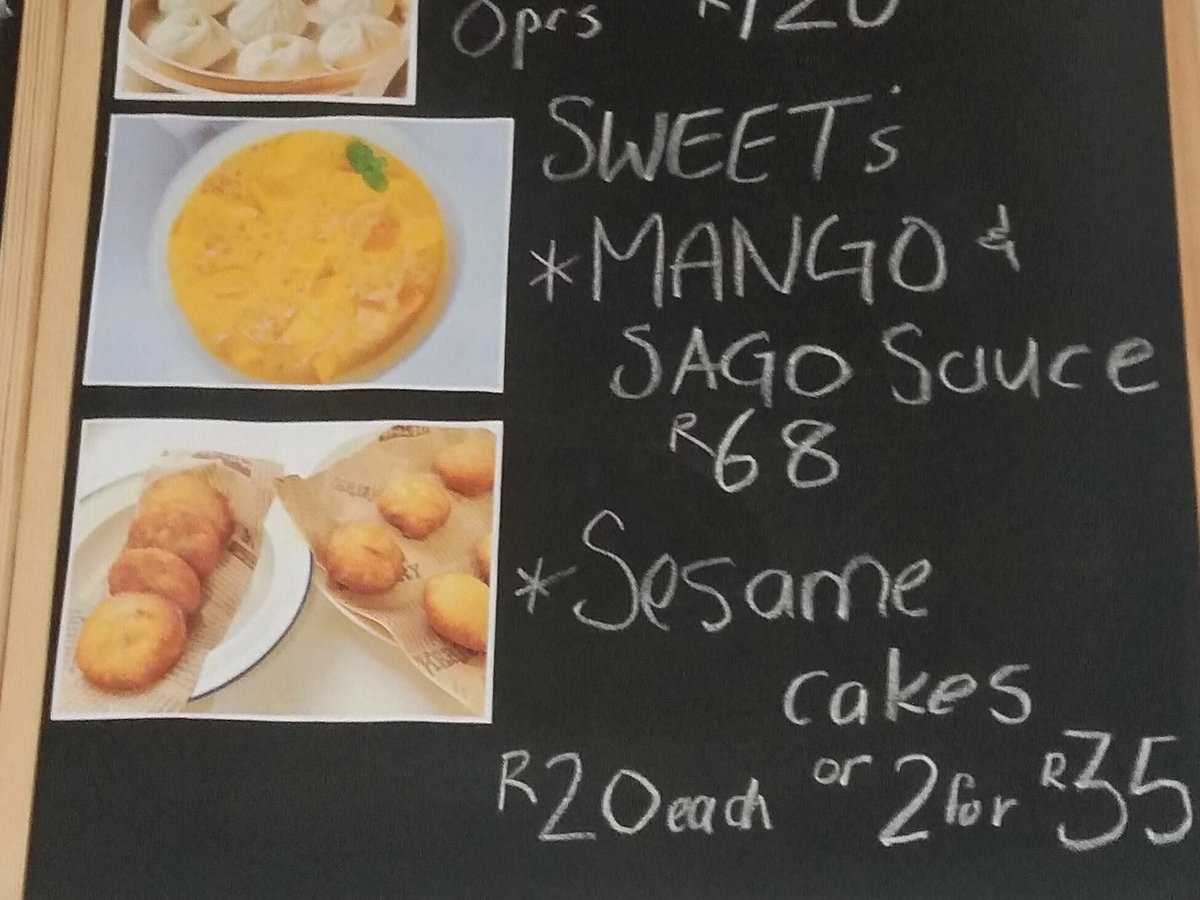 0prs R120
SWEETs
*MANGO &
SAGO Sauce
R68
*Sesame
cakes
R20 each or 2 for R35